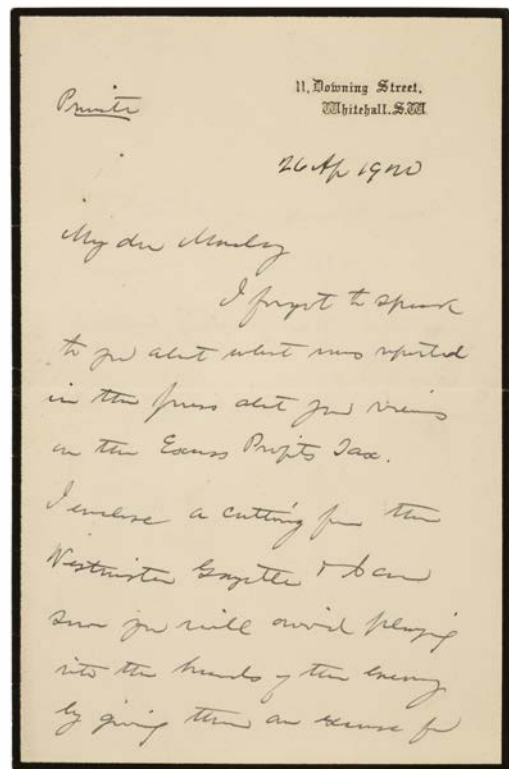 Private
11, Downing Street,
Whitehall. S.W.
26 Ap 1920
My dear Mosley
I forgot to speak
to you about what was reported
in the press about your views
on the Excess Profits Tax.
I enclose a cutting from the
Westminster Gazette & I am
sure you will avoid playing
into the hands of the enemy
by giving them an excuse for